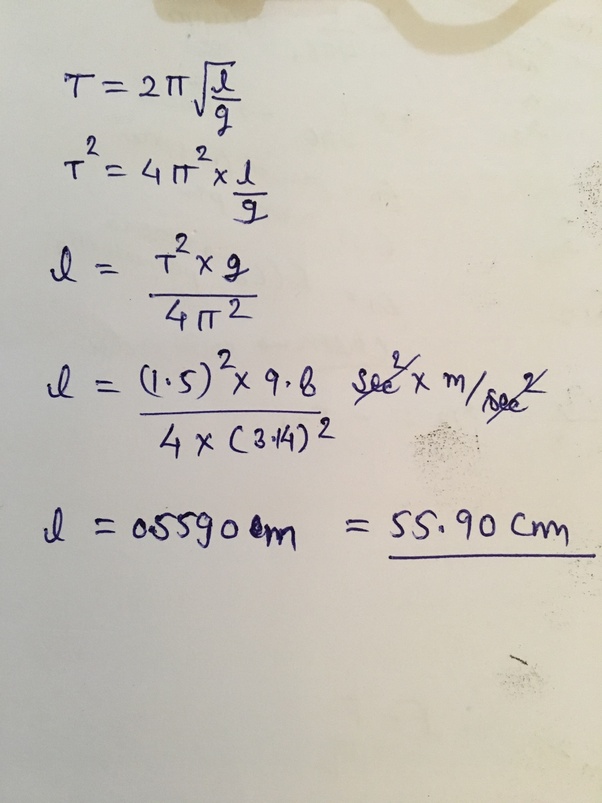 T = 2π√(l/g)
T² = 4π² × l/g
l = T² × g / 4π²
l = (1.5)² × 9.8 / 4 × (3.14)² sec² × m/sec²
l = 0.5590 m = 55.90 cm